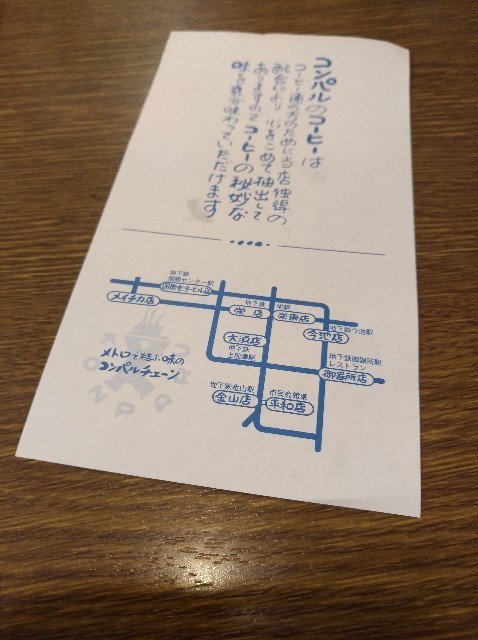 コンパルのコーヒーは
コーヒー通の方のために当店独得の
配合により 心をこめて抽出して
ありますので コーヒーの秘妙な
味を充分味わっていただけます
地下鉄
国際センター駅
国際センタービル店
メイチカ店
地下鉄
栄駅
栄店
栄東店
地下鉄今池駅
今池店
大須店
地下鉄
上前津駅
地下鉄御器所駅
レストラン
御器所店
地下鉄金山駅
金山店
市民会館東
平和店
メトロで結ぶ味の
コンパルチェーン